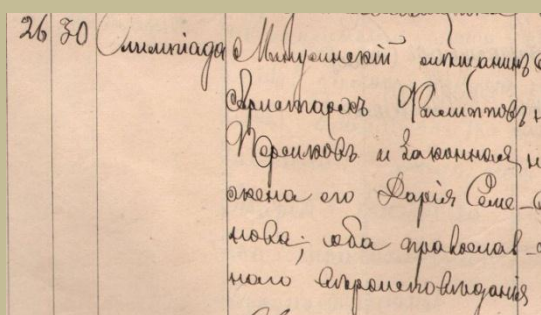 26 30 Олимпіада Минусинскій мѣщанинъ
Аристархъ Филипповъ
и законная
жена его Дарія Семе-
нова; оба православ-
наго вѣроисповѣданія